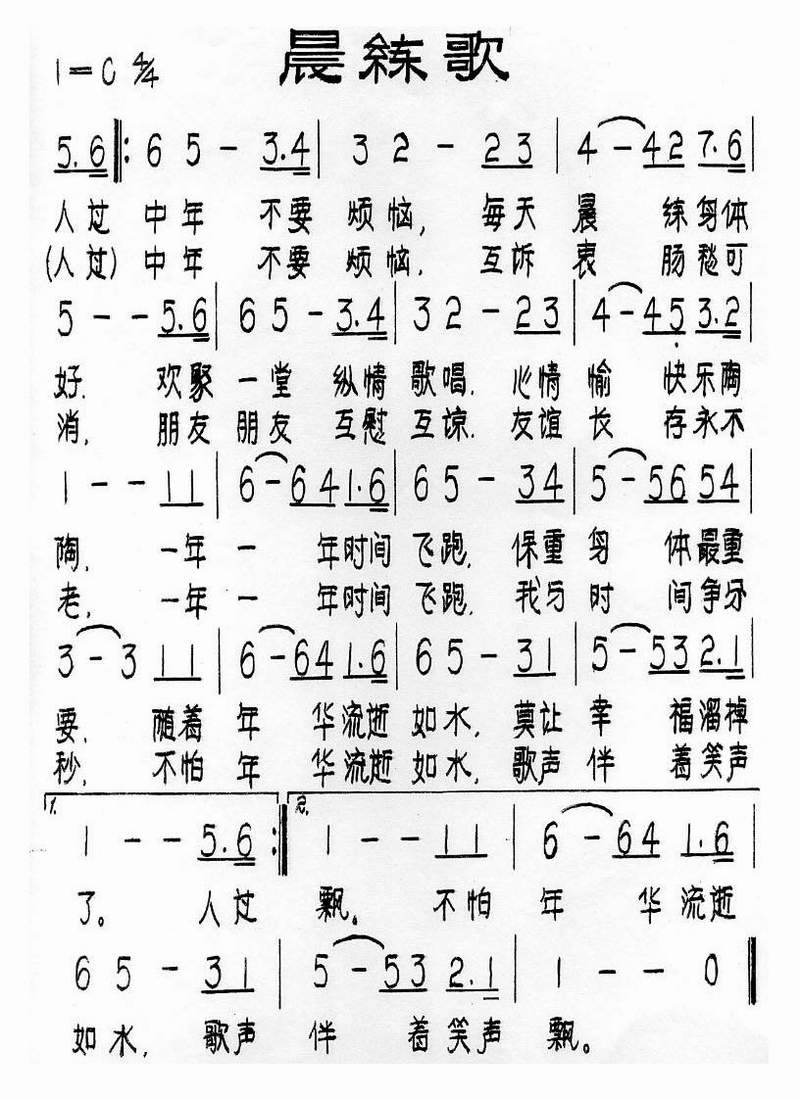 晨練歌
1=C 4/4
5.6 ‖: 6 5 - 3.4 | 3 2 - 2 3 | 4 - 4 2 7.6 |
人过 中年 不要 烦恼, 每天 晨 练身体
(人过) 中年 不要 烦恼. 互诉 衷 肠愁可
5 - - 5.6 | 6 5 - 3.4 | 3 2 - 2 3 | 4 - 4 5 3.2 |
好. 欢聚 一堂 纵情 歌唱. 心情 愉 快乐陶
消, 朋友 朋友 互慰 互谅. 友谊 长 存永不
1 - - 1 1 | 6 - 6 4 1.6 | 6 5 - 3 4 | 5 - 5 6 5 4 |
陶, 一年 一 年时间 飞跑, 保重 身 体最重
老, 一年 一 年时间 飞跑. 我与 时 间争分
3 - 3 1 1 | 6 - 6 4 1.6 | 6 5 - 3 1 | 5 - 5 3 2.1 |
要, 随着 年 华流逝 如水, 莫让 幸 福溜掉
秒, 不怕 年 华流逝 如水, 歌声 伴 着笑声
1. 1 - - 5.6 :‖ 2. 1 - - 1 1 | 6 - 6 4 1.6 |
了。 人过 飘。 不怕 年 华流逝
6 5 - 3 1 | 5 - 5 3 2.1 | 1 - - 0 ‖
如水, 歌声 伴 着笑声 飘。